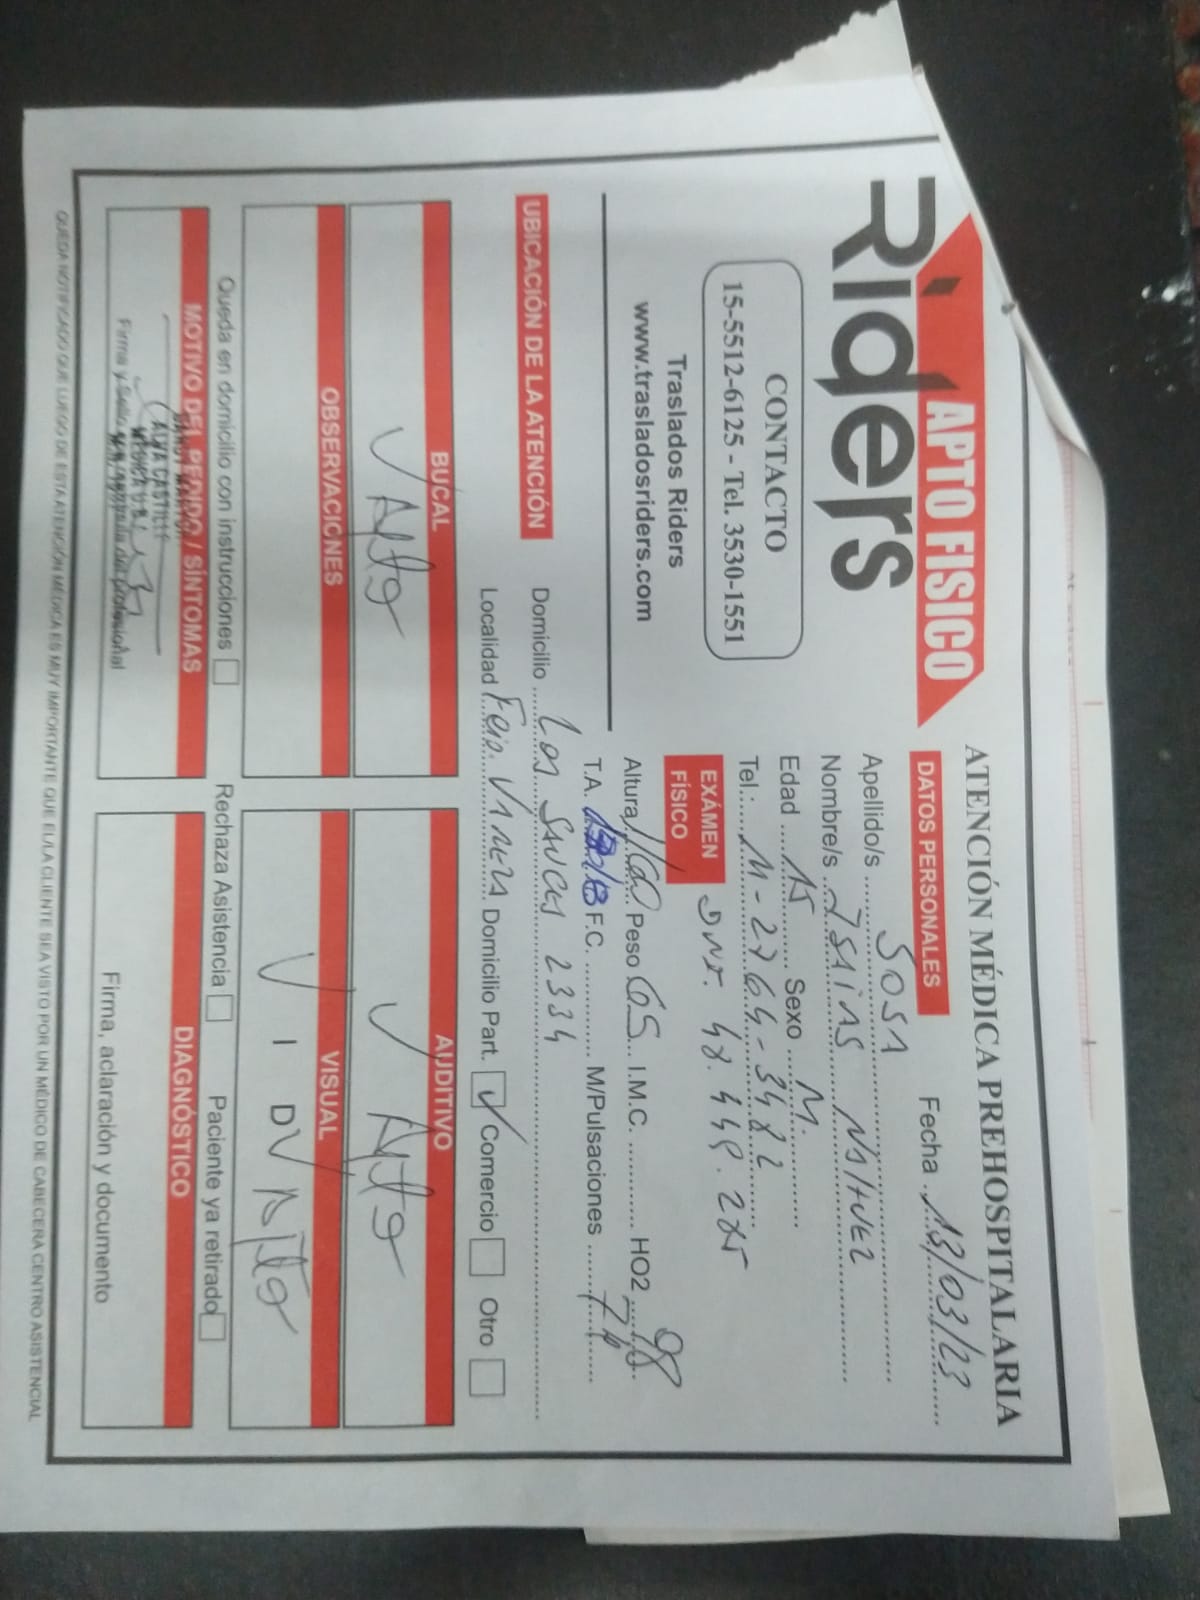 APTO FISICO
Riders
CONTACTO
15-5512-6125 - Tel. 3530-1551
Traslados Riders
www.trasladosriders.com
ATENCIÓN MÉDICA PREHOSPITALARIA
DATOS PERSONALES
Fecha 13/03/23
Apellido/s SOSA
Nombre/s ISAIAS
Edad 15 Sexo M.
Tel.: 11-2764-3482
EXÁMEN FÍSICO
DNI.
Altura Peso 65 I.M.C. HO2 98
T.A. F.C. M/Pulsaciones
UBICACIÓN DE LA ATENCIÓN
Domicilio Los SAUCES 2334
Localidad Domicilio Part. Comercio Otro
BUCAL
Apto
AUDITIVO
Apto
OBSERVACIONES
VISUAL
I D Apto
Queda en domicilio con instrucciones
Rechaza Asistencia
Paciente ya retirado
MOTIVO DEL PEDIDO / SÍNTOMAS
DIAGNÓSTICO
Firma y Sello matrícula del profesional
Firma, aclaración y documento
QUEDA NOTIFICADO QUE LUEGO DE ESTA ATENCIÓN MÉDICA ES MUY IMPORTANTE QUE EL/LA CLIENTE SEA VISTO POR UN MÉDICO DE CABECERA CENTRO ASISTENCIAL